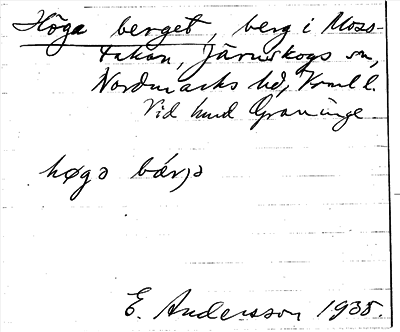 Höga berget, berg i Moss-
takan, Järnskogs sn,
Nordmarks hd, Vrml l.
Vid hmd Graninge
høgə bárjə
E. Andersson 1935.